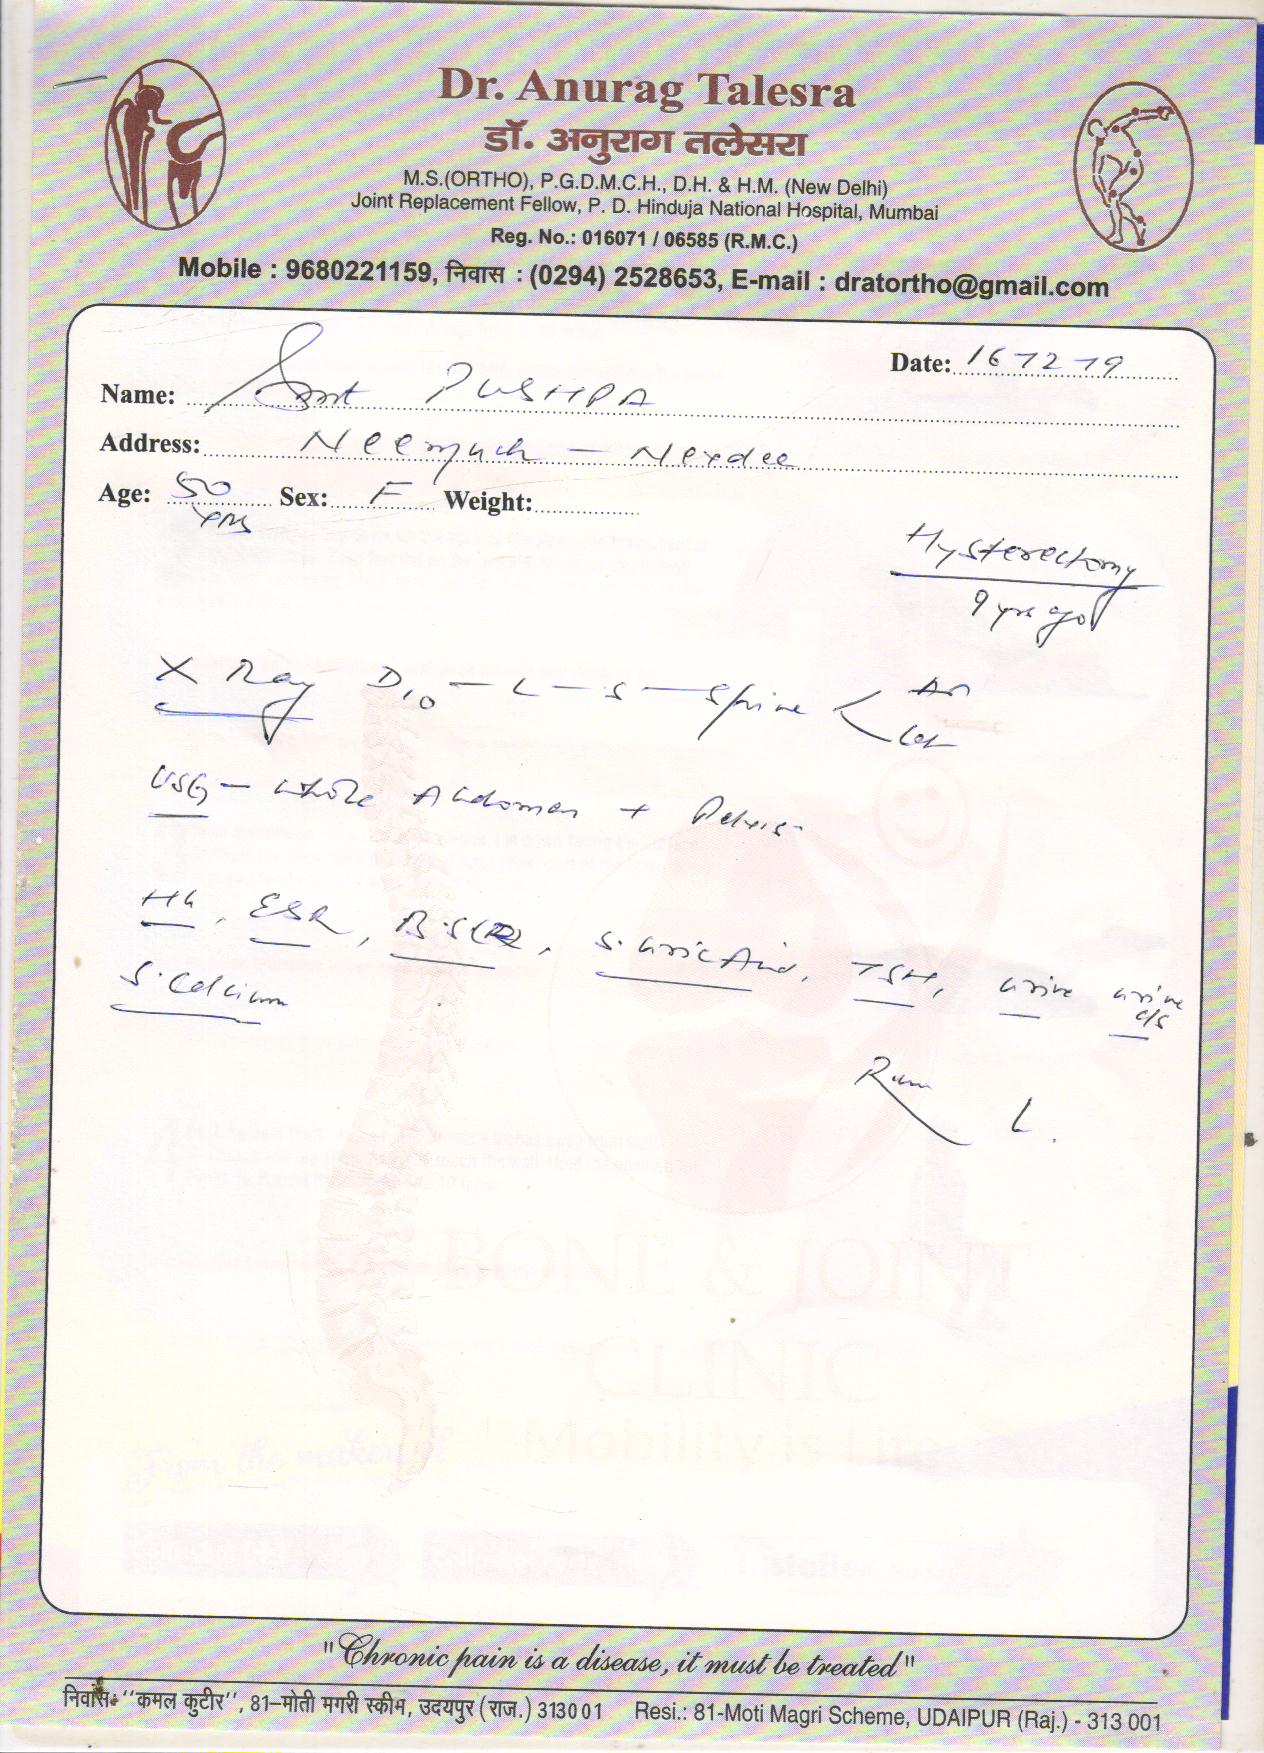 Dr. Anurag Talesra
डॉ. अनुराग तलेसरा
M.S.(ORTHO), P.G.D.M.C.H., D.H. & H.M. (New Delhi)
Joint Replacement Fellow, P. D. Hinduja National Hospital, Mumbai
Reg. No.: 016071 / 06585 (R.M.C.)
Mobile : 9680221159, निवास : (0294) 2528653, E-mail : dratortho@gmail.com
Date: 16-12-19
Name: Smt PUSHPA
Address: Neemuch -
Age: 50 yrs Sex: F Weight:
Hysterectomy
9 yrs ago
X Ray D10 - L - S - Spine < AP
Lat
USG - Whole Abdomen + Pelvis
Hb, ESR, B.S(R), S. Uric Acid, TSH, Urine Urine c/s
S. Calcium
BONE & JOINT
CLINIC
Mobility is Life
From the makers of
"Chronic pain is a disease, it must be treated"
निवास: "कमल कुटीर", 81-मोती मगरी स्कीम, उदयपुर (राज.) 313001 Resi.: 81-Moti Magri Scheme, UDAIPUR (Raj.) - 313 001